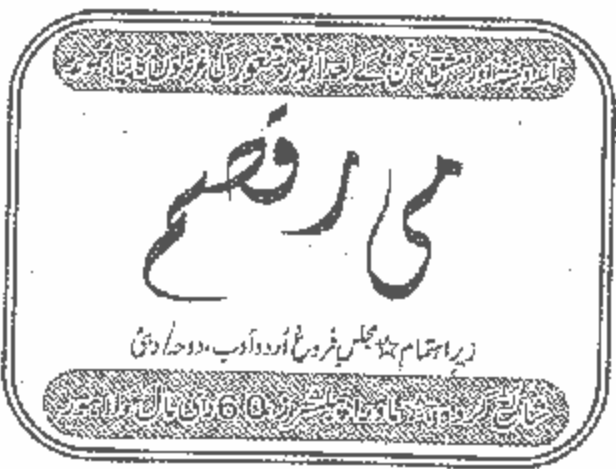 اندوختہ اور مشقِ سخن کے بعد انور شعور کی غزلوں کا نیا مجموعہ
می رقصم
زیرِ اہتمام ☆ مجلس فروغ اُردو ادب، دوحہ/دبئی
شائع کردہ ☆ ماورا پبلشرز 60 دی مال لاہور